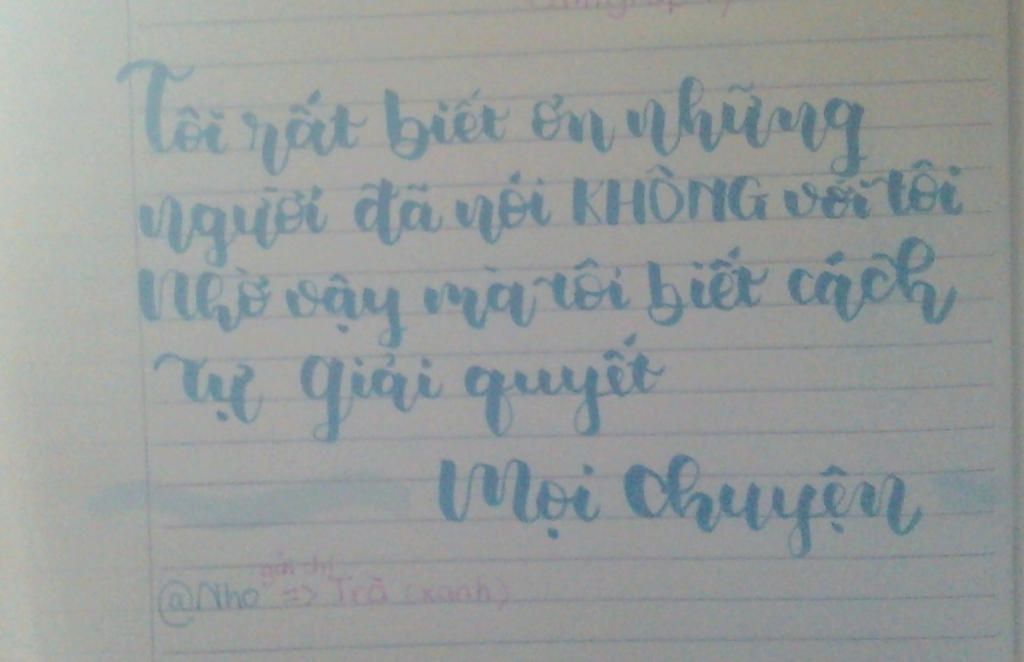 Tôi rất biết ơn những
người đã nói KHÔNG với tôi
Nhờ vậy mà tôi biết cách
tự giải quyết
Mọi chuyện
gửi chị
@Nho => Trà (xanh)